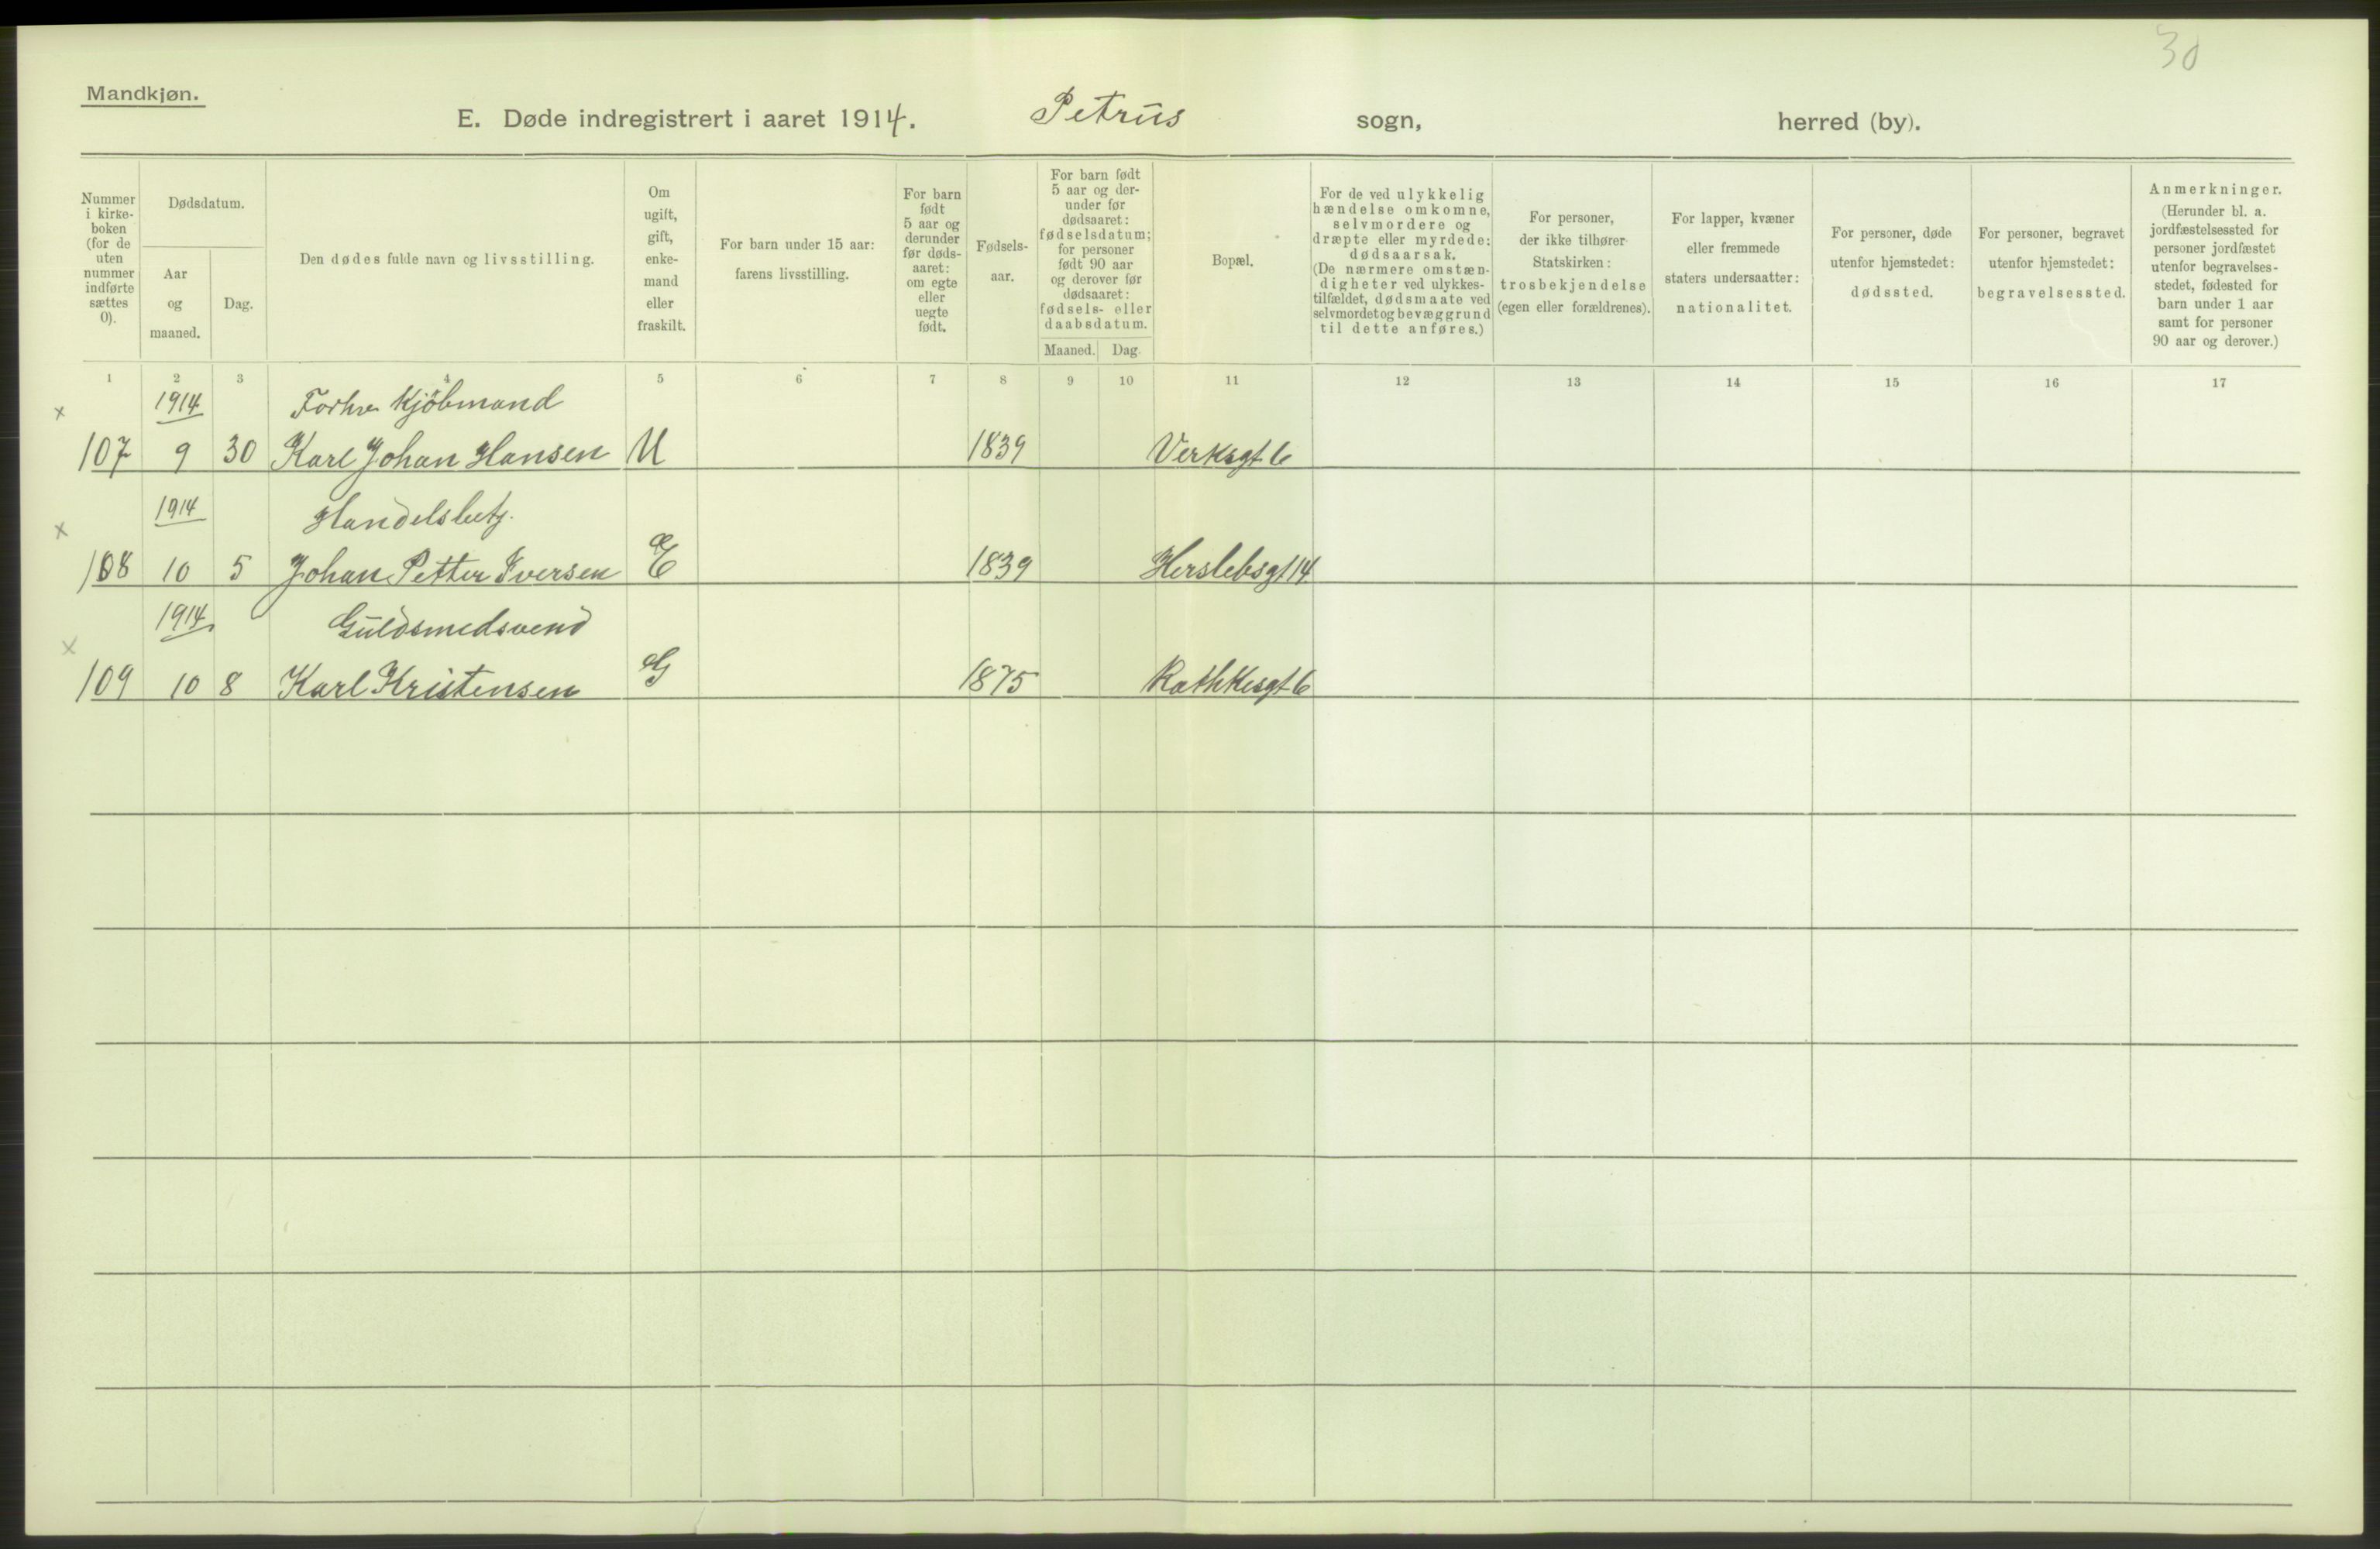 30
Mandkjøn.
E. Døde indregistrert i aaret 1914. Petrus sogn, herred (by).
Nummer i kirke-boken (for de uten nummer indførte sættes 0).
Dødsdatum.
Aar og maaned.
Dag.
Den dødes fulde navn og livsstilling.
Om ugift, gift, enke-mand eller fraskilt.
For barn under 15 aar: farens livsstilling.
For barn født 5 aar og derunder før døds-aaret: om egte eller uegte født.
Fødsels-aar.
For barn født 5 aar og der-under før dødsaaret: fødselsdatum; for personer født 90 aar og derover før dødsaaret: fødsels- eller daabsdatum.
Maaned. Dag.
Bopæl.
For de ved ulykkelig hændelse omkomne, selvmordere og dræpte eller myrdede: dødsaarsak. (De nærmere omstæn-digheter ved ulykkes-tilfældet, dødsmaate ved selvmordet og bevæggrund til dette anføres.)
For personer, der ikke tilhører Statskirken: trosbekjendelse (egen eller forældrenes).
For lapper, kvæner eller fremmede staters undersaatter: nationalitet.
For personer, døde utenfor hjemstedet: dødssted.
For personer, begravet utenfor hjemstedet: begravelsessted.
Anmerkninger. (Herunder bl. a. jordfæstelsessted for personer jordfæstet utenfor begravelses-stedet, fødested for barn under 1 aar samt for personer 90 aar og derover.)
1 2 3 4 5 6 7 8 9 10 11 12 13 14 15 16 17
x 1914 Forhv. Kjöbmand
107 9 30 Karl Johan Hansen U 1839 Verksgt 6
x 1914 Handelsbetj.
108 10 5 Johan Petter Iversen E 1839 Herslebsgt 14
x 1914 Guldsmedsvend
109 10 8 Karl Kristensen G 1875 Rathkesgt 6